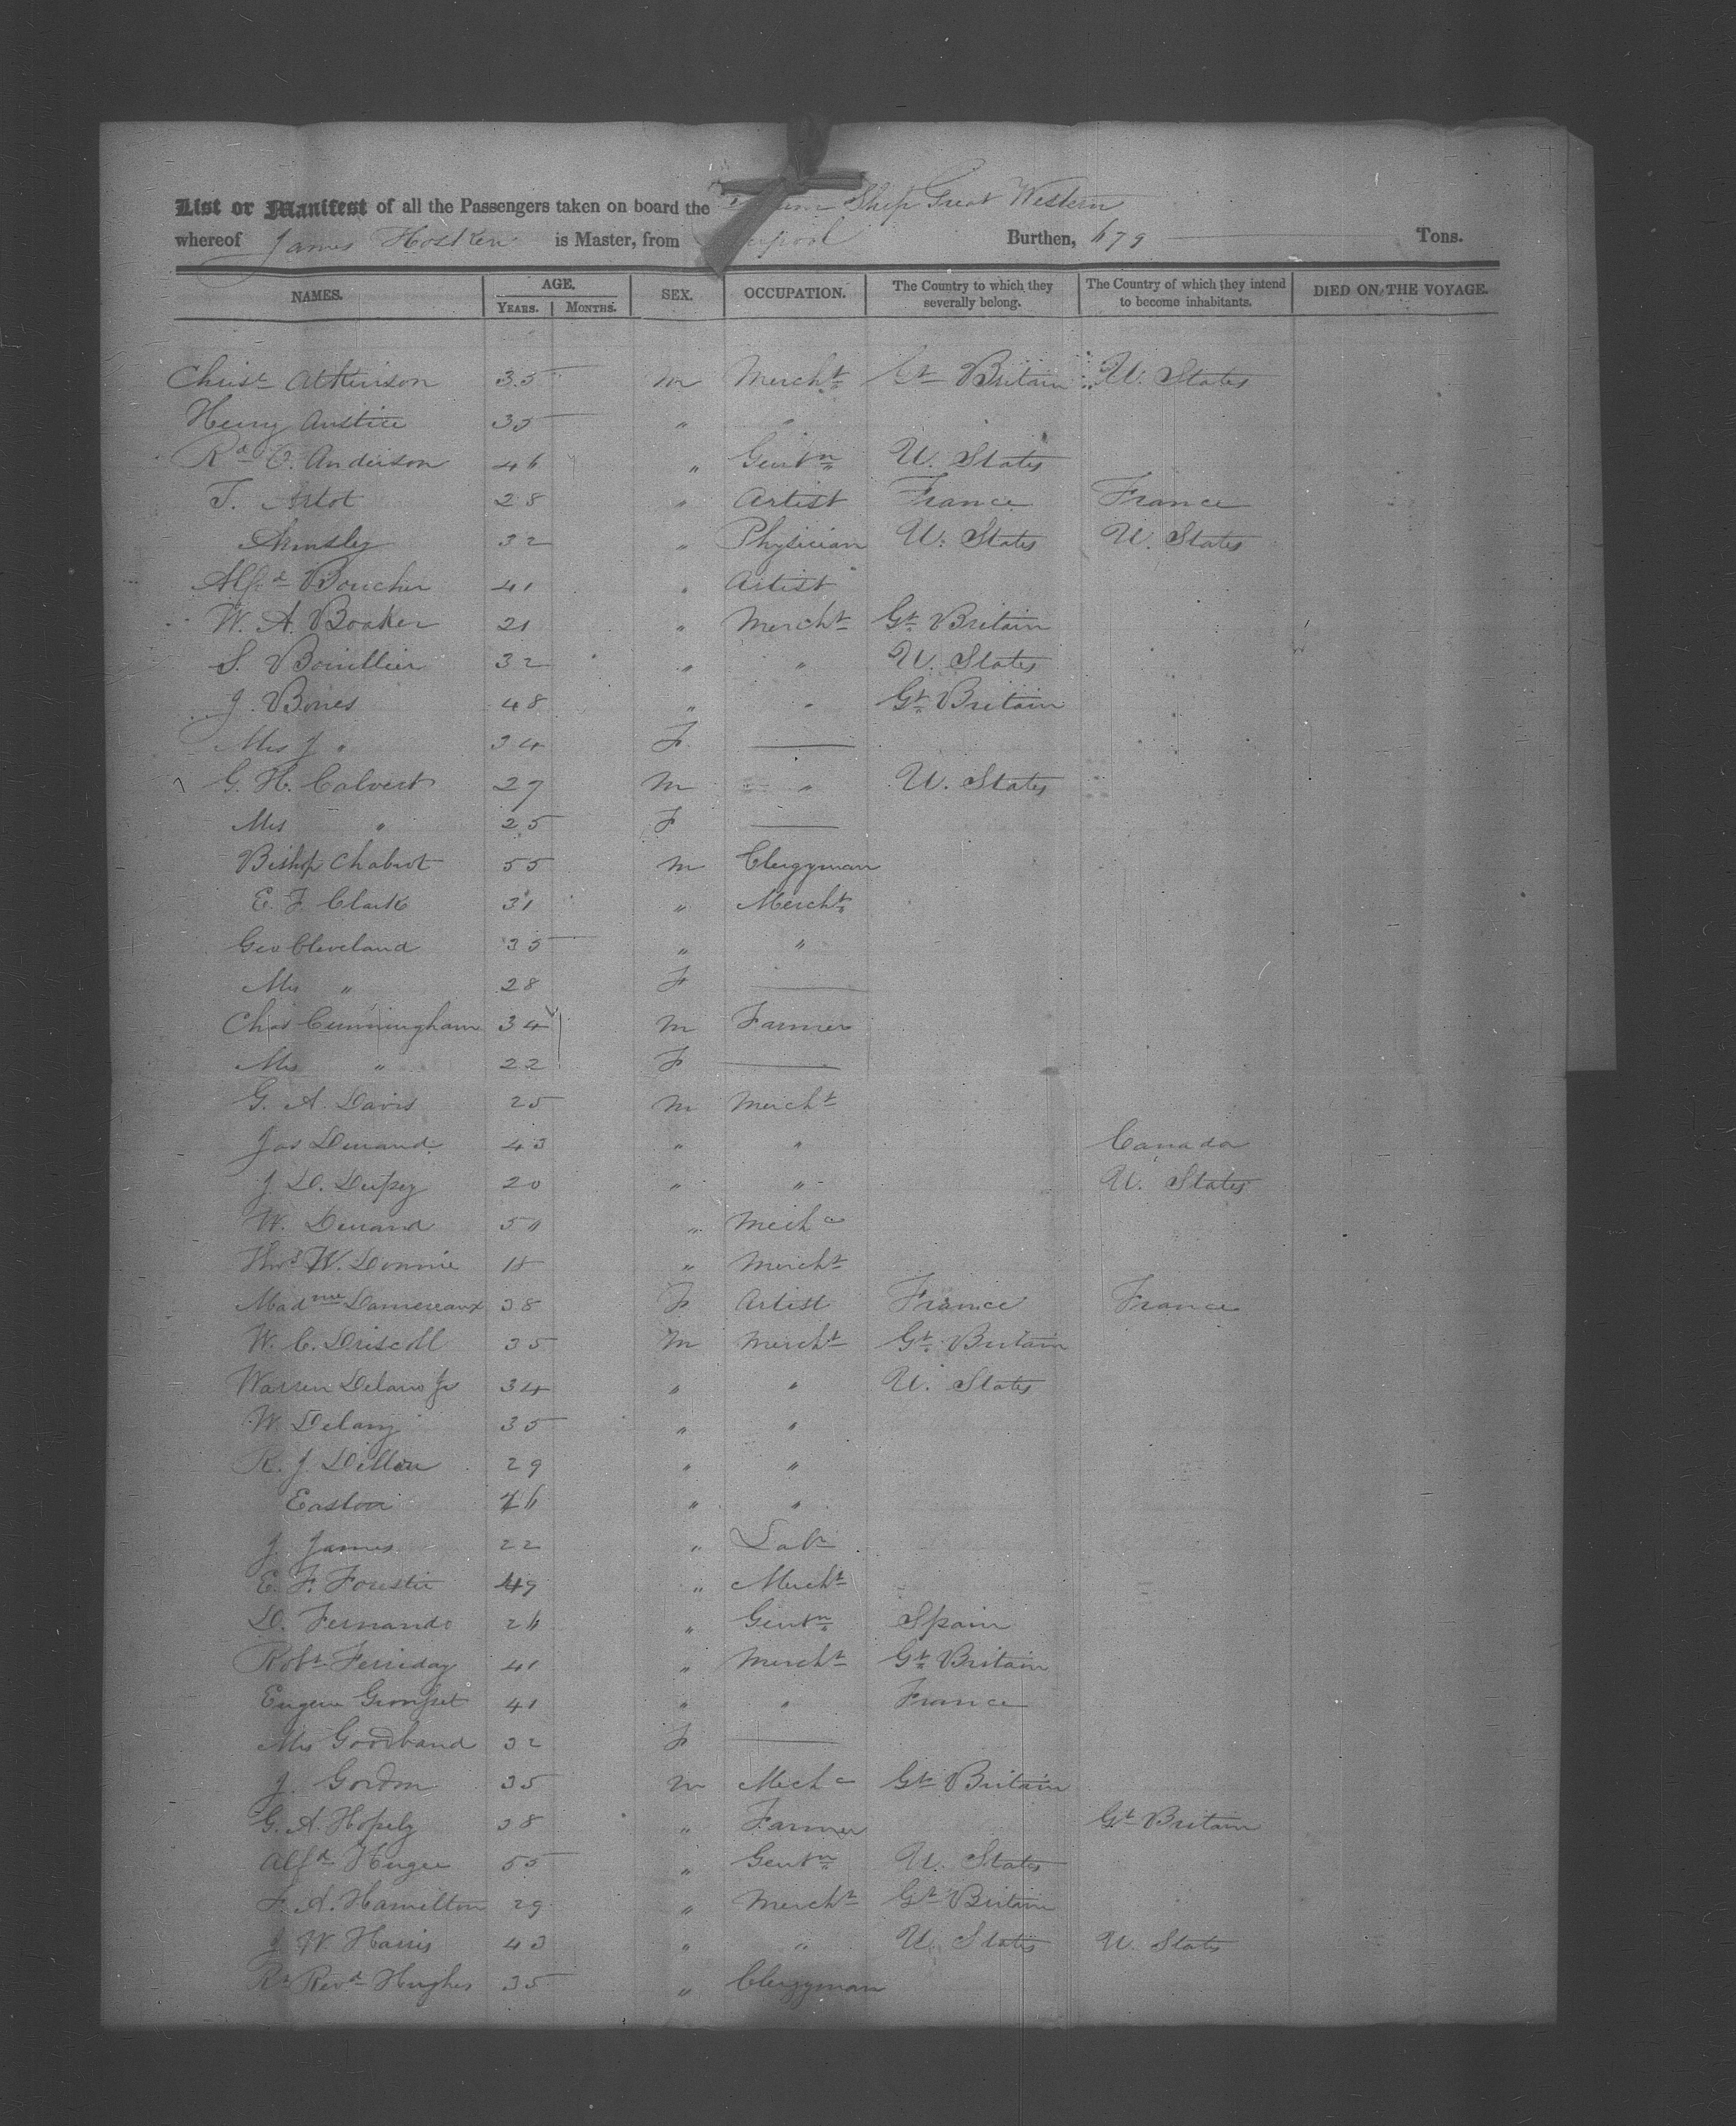 List or Manifest of all the Passengers taken on board the Steam Ship Great Western
whereof James Hosken is Master, from Liverpool Burthen, 679 Tons.
NAMES. AGE. SEX. OCCUPATION. The Country to which they severally belong. The Country of which they intend to become inhabitants. DIED ON THE VOYAGE.
YEARS. MONTHS.
Christ Atkinson 35 m Mercht Gt Britain U. States
Henry Austice 35 " "
Rd C. Anderson 46 " Gentn U. States
T. Artot 28 " Artist France France
32 " Physician U. States U. States
Alfd Boucher 41 " Artist
W. A. Booker 21 " Mercht Gt Britain
S. Bouillier 32 " " U. States
J. Bones 48 " " Gt Britain
Mrs J " 34 F
G. H. Calvert 27 m " U. States
Mrs " 25 F
Bishop Chabrot 55 m Clergyman
E. F. Clark 31 " Mercht
Geo Cleveland 35 " "
Mrs " 28 F
Chas Cunningham 34 m Farmer
Mrs " 22 F
G. A. Davis 25 m Mercht
Jas Durand 43 " " Canada
J. D. Dupey 20 " " U. States
W. Durand 50 " Mechc
Thos W. Donnie 18 " Mercht
Madme Damereaux 38 F Artist France France
W. C. Driscoll 35 m Mercht Gt Britain
Warren Delano Jr 34 " " U. States
W. Delany 35 " "
R. J. Dillon 29 " "
Easton 26 " "
J. James 22 " Labr
E. F. Forestie 49 " Mercht
D. Fernando 26 " Gentn Spain
Robt Ferriday 41 " Mercht Gt Britain
Eugene Grousset 41 " " France
Mrs Goodband 32 F
J. Gordon 35 m Mechc Gt Britain
G. A. Hopely 38 " Farmer Gt Britain
Alfd Huger 55 " Gentn U. States
F. A. Hamilton 29 " Mercht Gt Britain
J. W. Harris 43 " " U. States U. States
Rt Revd Hughes 35 " Clergyman